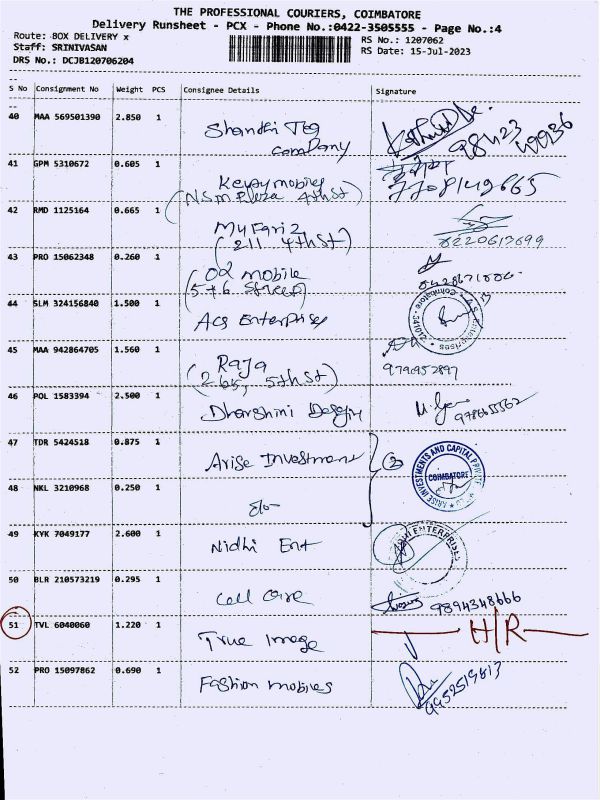 THE PROFESSIONAL COURIERS, COIMBATORE
Delivery Runsheet - PCX - Phone No.:0422-3505555 - Page No.:4
Route: BOX DELIVERY x
RS No.: 1207062
Staff: SRINIVASAN
RS Date: 15-Jul-2023
DRS No.: DCJB120706204
S No Consignment No Weight PCS Consignee Details Signature
40 MAA 569501390 2.850 1
Shandhi Teg
company
98423
49936
41 GPM 5310672 0.605 1
Kenymobiles
(NSM Plaza 4th St)
7708149665
42 RMD 1125164 0.665 1
My Fariz
(211 4th St)
8220617699
43 PRO 15062348 0.260 1
(O2 mobile
5+6 Street)
44 SLM 324156840 1.500 1
Acs Enterprises
Enterprises
Coimbatore
45 MAA 942864705 1.560 1
Raja
(265, 5th St)
9790952897
46 POL 1583394 2.500 1
Dharshini Design
9786655562
47 TDR 5424518 0.875 1
Arise Investment (2)
ARISE INVESTMENTS AND CAPITAL PRIVATE
COIMBATORE
48 NKL 3210968 0.250 1
49 KYK 7049177 2.600 1
Nidhi Ent
NIDHI ENTERPRISES
50 BLR 210573219 0.295 1
Cell Care
9894348666
51 TVL 6040060 1.220 1
True Image
H/R
52 PRO 15097862 0.690 1
Fashion mobiles
9952519813